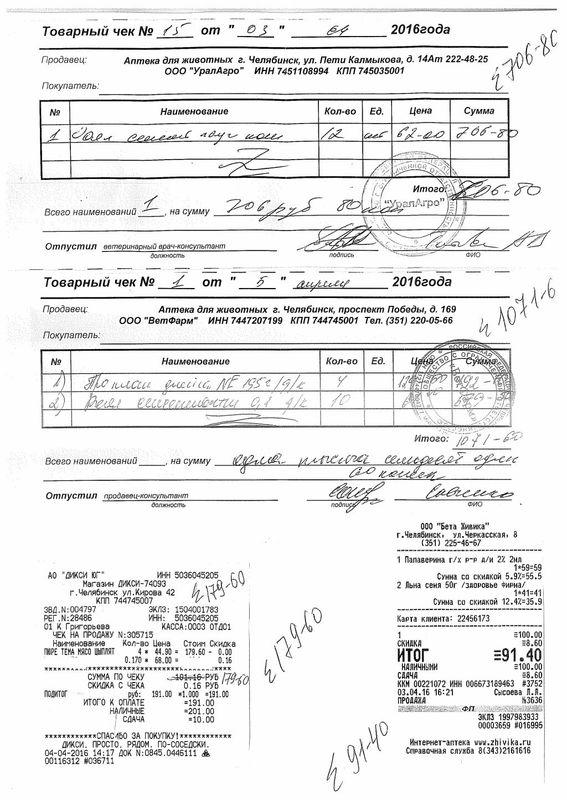 Товарный чек № 15 от "03" 04 2016года
Продавец: Аптека для животных г. Челябинск, ул. Пети Калмыкова, д. 14Ат 222-48-25
ООО "УралАгро" ИНН 7451108994 КПП 745035001
Σ 706-80
Покупатель:
№ Наименование Кол-во Ед. Цена Сумма
1 12 шт 62-00 706-80
Итого: 706-80
"УралАгро"
Всего наименований 1, на сумму 706 руб 80 коп
Отпустил ветеринарный врач-консультант
должность подпись ФИО
Товарный чек № 1 от "5" апреля 2016года
Продавец: Аптека для животных г. Челябинск, проспект Победы, д. 169
ООО "ВетФарм" ИНН 7447207199 КПП 744745001 Тел. (351) 220-05-66
Σ 1071-6
Покупатель:
№ Наименование Кол-во Ед. Цена Сумма
1) Проплан 195г 4
2) 10
Итого: 1071-60
Всего наименований , на сумму одна тысяча семьдесят один
60 копеек
Отпустил продавец-консультант
должность подпись ФИО
АО "ДИКСИ ЮГ" ИНН 5036045205
Магазин ДИКСИ-74093
г.Челябинск ул.Кирова 42
КПП 744745007
ЗВД.N:004797 ЭКЛЗ: 1504001783
РЕГ.N:28486 ИНН: 5036045205
01 К Григорьева КАССА:0003 ОТД01
ЧЕК НА ПРОДАЖУ N:305715
Наименование Кол-во Цена Стоим Скидка
ПЮРЕ ТЕМА МЯСО ЦЫПЛЯТ 4 * 44.90 = 179.60 - 0.00
0.170 * 68.00 = 0.16
СУММА ПО ЧЕКУ 191.16 РУБ 179-60
СКИДКА С ЧЕКА 0.16 РУБ
ПОДИТОГ руб. 191.00 *1.000 =191.00
ИТОГО К ОПЛАТЕ =191.00
НАЛИЧНЫЕ =201.00
СДАЧА =10.00
************СПАСИБО ЗА ПОКУПКУ!************
ДИКСИ. ПРОСТО. РЯДОМ. ПО-СОСЕДСКИ.
04-04-2016 14:17 ДОК N:0845.0446111
00116312 #036711
Σ 179-60
Σ 179-60
Σ 91-40
ООО "Бета Живика"
г.Челябинск, ул.Черкасская, 8
(351) 225-46-67
1 Папаверина г/х р-р д/и 2% 2мл
1*59=59
Сумма со скидкой 5.9%=55.5
2 Льна семя 50г /здоровье фирма/
1*41=41
Сумма со скидкой 12.4%=35.9
Карта клиента: 22456173
1 ≡100.00
СКИДКА ≡8.60
ИТОГ ≡91.40
НАЛИЧНЫМИ ≡100.00
СДАЧА ≡8.60
ККМ 00221072 ИНН 006673189463 #3752
03.04.16 16:21 Сысоева Л.Л.
ПРОДАЖА №3636
ФП
ЭКЛЗ 1997983933
00003659 #016995
Интернет-аптека www.zhivika.ru
Справочная служба 8(343)2161616